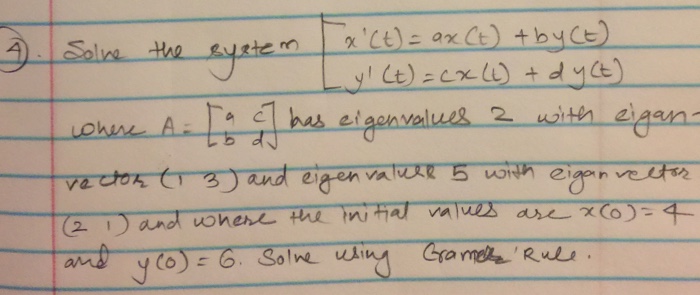 4). Solve the system [ x'(t) = ax(t) + by(t)
y'(t) = cx(t) + dy(t)
where A = [a c b d] has eigenvalues 2 with eigan-
vector (1 3) and eigenvalues 5 with eigan vector
(2 1) and where the initial values are x(0) = 4
and y(0) = 6. Solve using Gramer Rule.